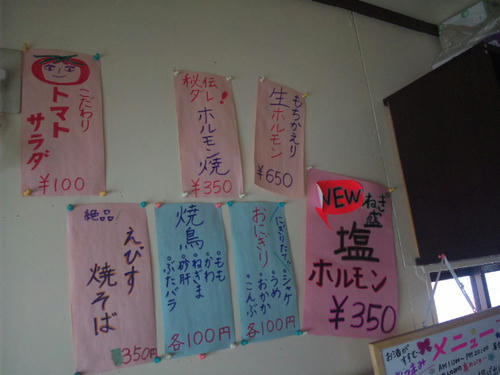 こだわり
トマト
サラダ
¥100
秘伝
ダレ!
ホルモン焼
¥350
もちかえり
生ホルモン
¥650
絶品
えびす
焼そば
350円
焼鳥
もも
かわ
ねぎま
砂肝
ぶたバラ
各100円
にぎりたて
おにぎり
シャケ
うめ
おかか
こんぶ
各100円
NEW
ねぎ盛
塩
ホルモン
¥350
メニュー